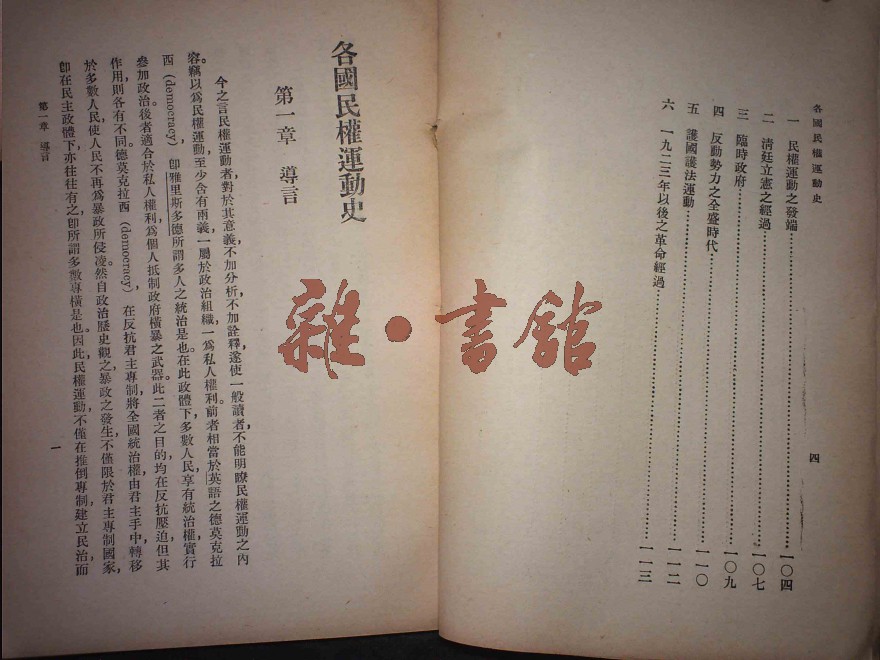 各國民權運動史
一　民權運動之發端……一〇四
二　清廷立憲之經過……一〇七
三　臨時政府……一〇九
四　反動勢力之全盛時代……一一〇
五　護國護法運動……一一二
六　一九二三年以後之革命經過……一一三
四
各國民權運動史
第一章　導言
今之言民權運動者，對於其意義，不加分析，不加詮釋，遂使一般讀者，不能明瞭民權運動之內
容。竊以爲民權運動，至少含有兩義，一屬於政治組織，一爲私人權利。前者相當於英語之德莫克拉
西 (democracy)，卽雅里斯多德所謂多人之統治是也。在此政體下，多數人民，享有統治權，實行
參加政治。後者適合於私人權利，爲個人抵制政府橫暴之武器。此二者之目的，均在反抗壓迫，但其
作用，則各有不同。德莫克拉西 (democracy)，在反抗君主專制，將全國統治權，由君主手中，轉移
於多數人民，使人民不再爲暴政所侵凌。然自政治歷史觀之，暴政之發生，不僅限於君主專制國家，
卽在民主政體下，亦往往有之，卽所謂多數專橫是也。因此，民權運動，不僅在推倒專制，建立民治，而
第一章　導言
一
雜·書館